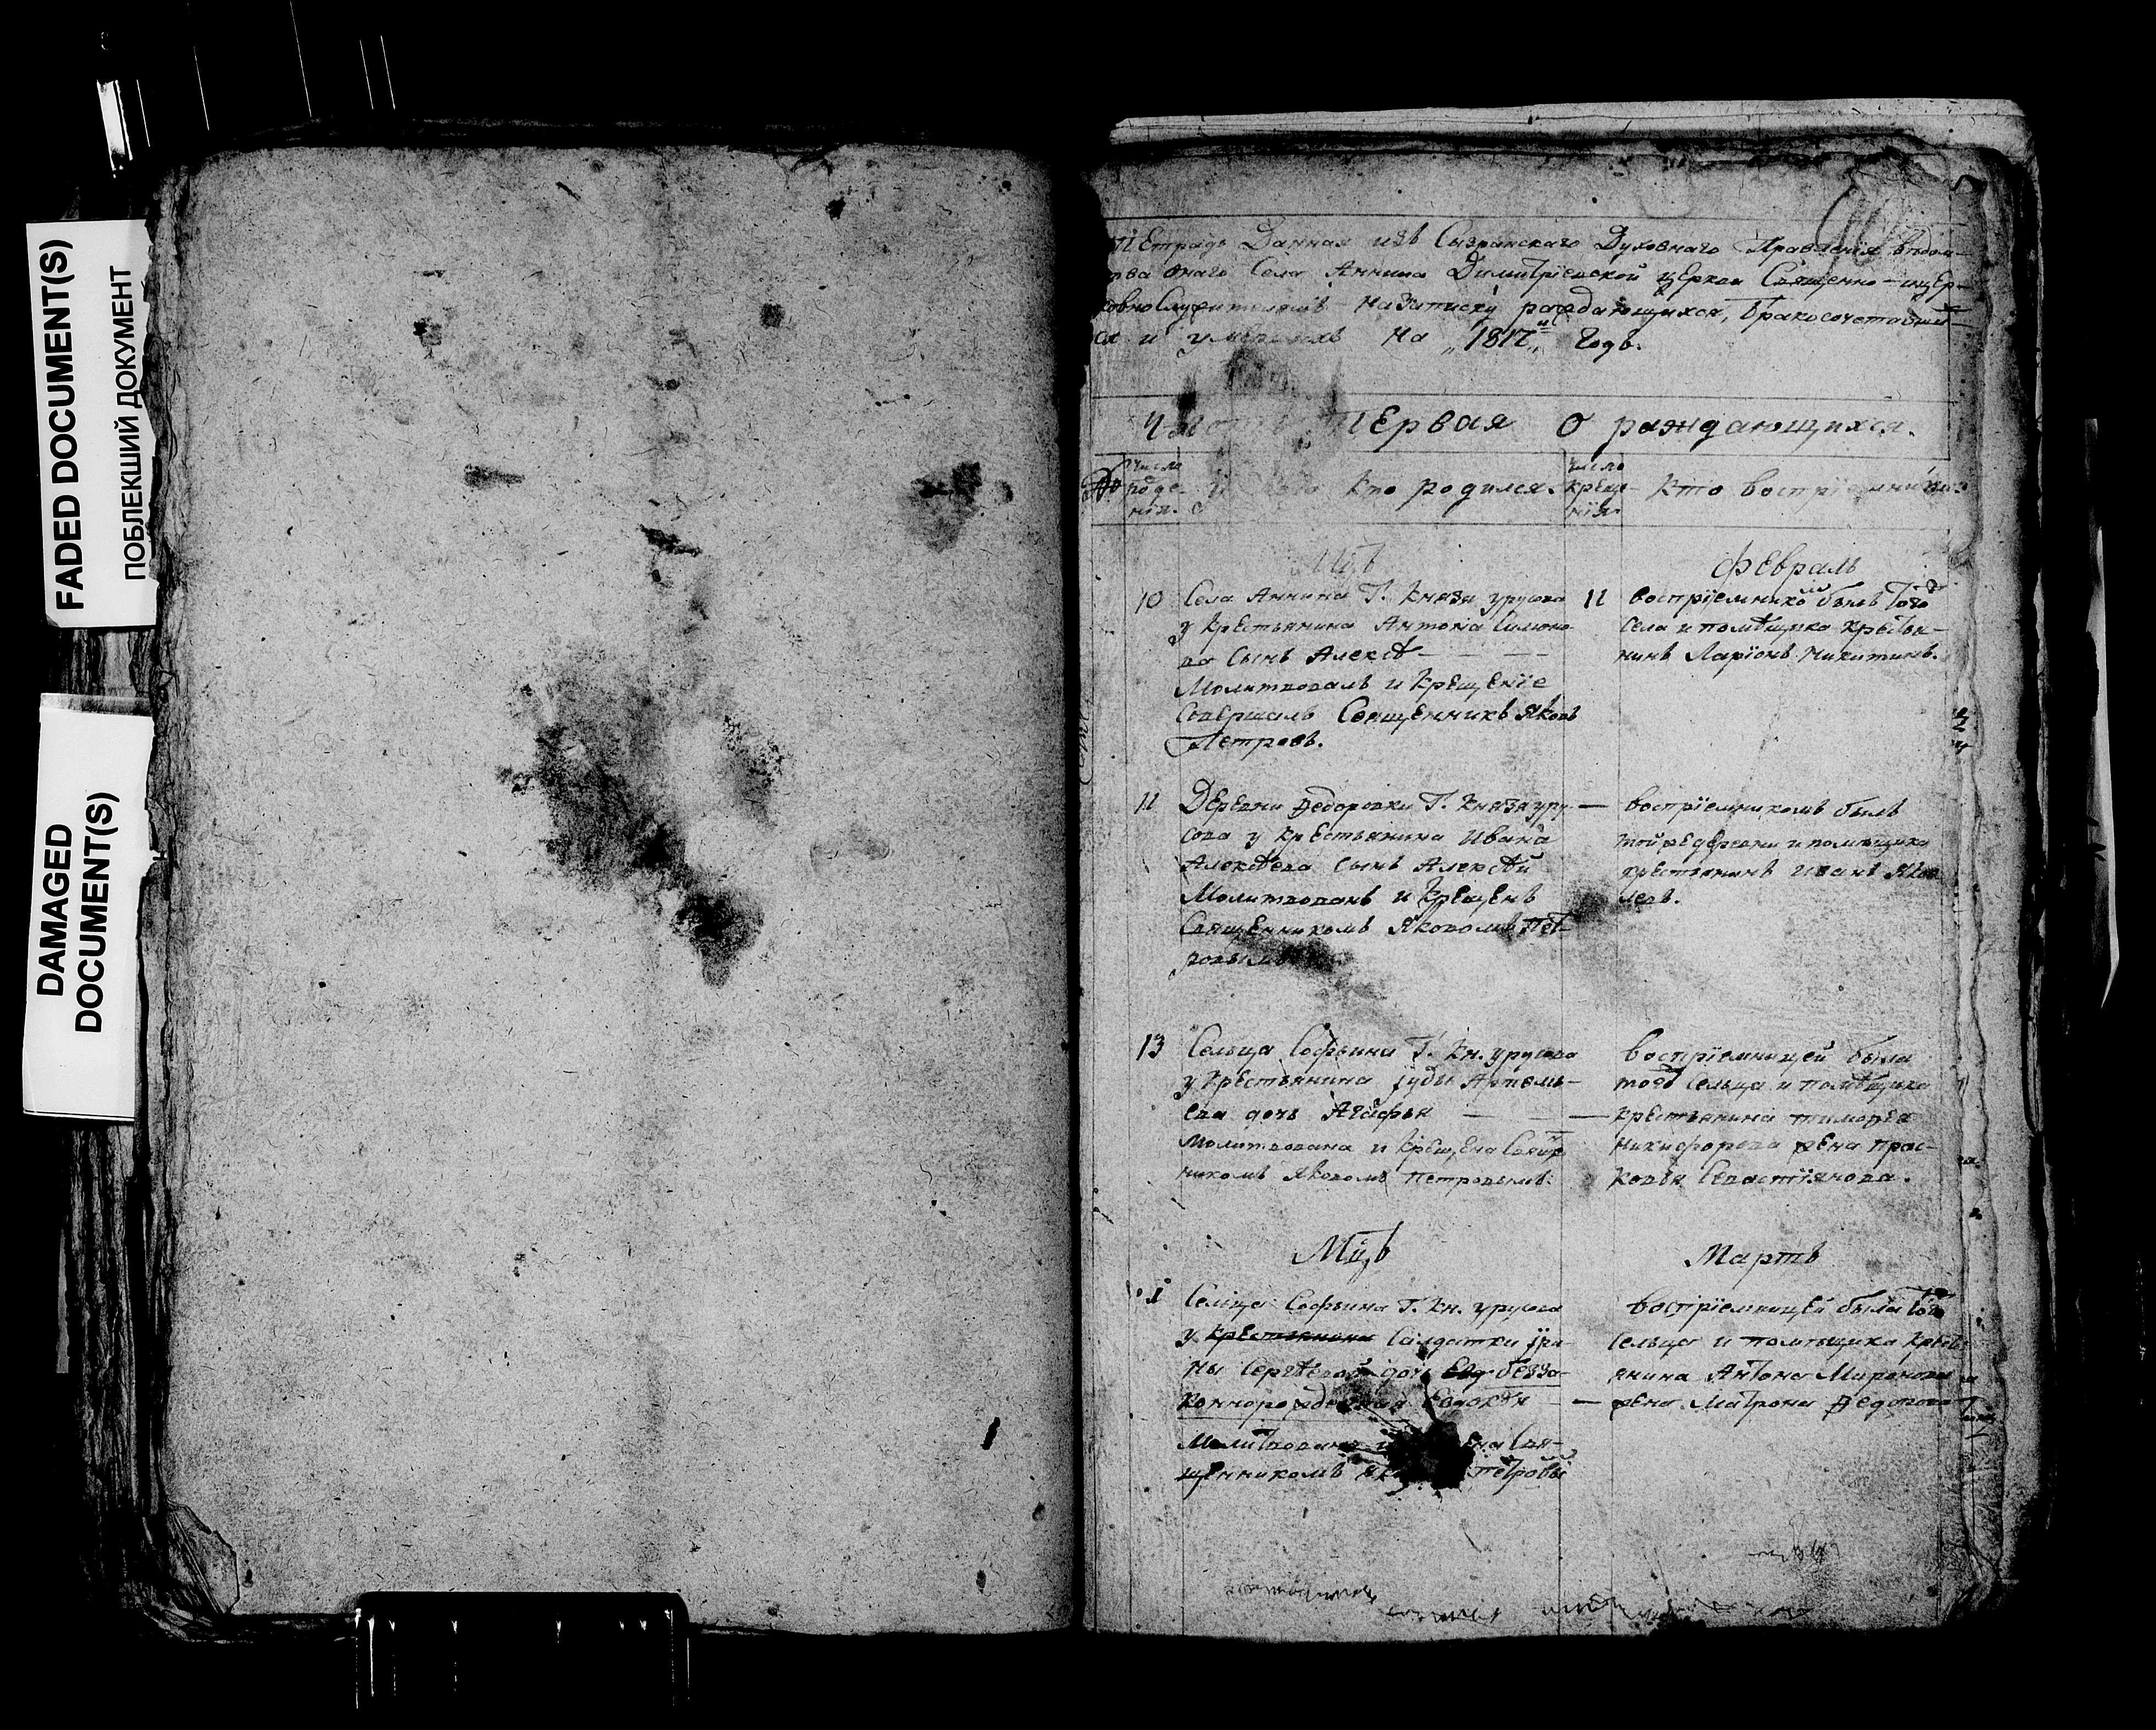 FADED DOCUMENT(S)
ПОБЛЕКШИЙ ДОКУМЕНТ
DAMAGED
DOCUMENT(S)
Тетрадь Данная изъ Сызранскаго Духовнаго Правленія вѣдом-
ства онаго Села Аннина Димитріевской церкви Священно-и цер-
ковнослужителямъ на записку раждающихся, бракосочетавши-
ся и умершихъ на „1817„ й Годъ.
Часть Первая О раждающихся.
Число
роде-
нія.
кто родился.
Число
креще-
нія.
Кто воспріемники.
Мцъ
Февраль
10
Села Аннина Г. Князя Урусова
у крестьянина Антона Симоно-
ва сынъ Алексѣ
Молитвовалъ и крещеніе
совершалъ Священникъ Яковъ
Петровъ.
11
воспріемнико былъ того
села и помѣщика крестья-
нинъ Ларіонъ Никитинъ.
11
Деревни Федоровки Г. Князя Уру-
сова у крестьянина Ивана
Алексѣева сынъ Алексѣй
Молитвованъ и крещенъ
Священникомъ Яковомъ Пет-
ровымъ
воспріемникомъ былъ
той же деревни и помѣщика
крестьянинъ Иванъ Яков
левъ.
13
Сельца Софьина Г. Кн. Урусова
у крестьянина Іуды Артемь-
ева дочь Агафья
Молитвована и крещена Свящ
никомъ Яковомъ Петровымъ.
воспріемницей была
того сельца и помѣщика
крестьянина Тимофея
Никифорова жена Прас-
ковья Севастіянова.
Мцъ
Мартъ
1
Сельца Софьина Г. Кн. Урусова
у крестьянина Салдатки Ири-
ны Сергѣевой дочь беззо-
коннорожденная Евдокѣя
Молитвована и ена Свя-
щенникомъ Як Петровы
воспріемницей была того
сельца и помѣщика кресть
янина Антона Миронова
жена Матрона Федорова